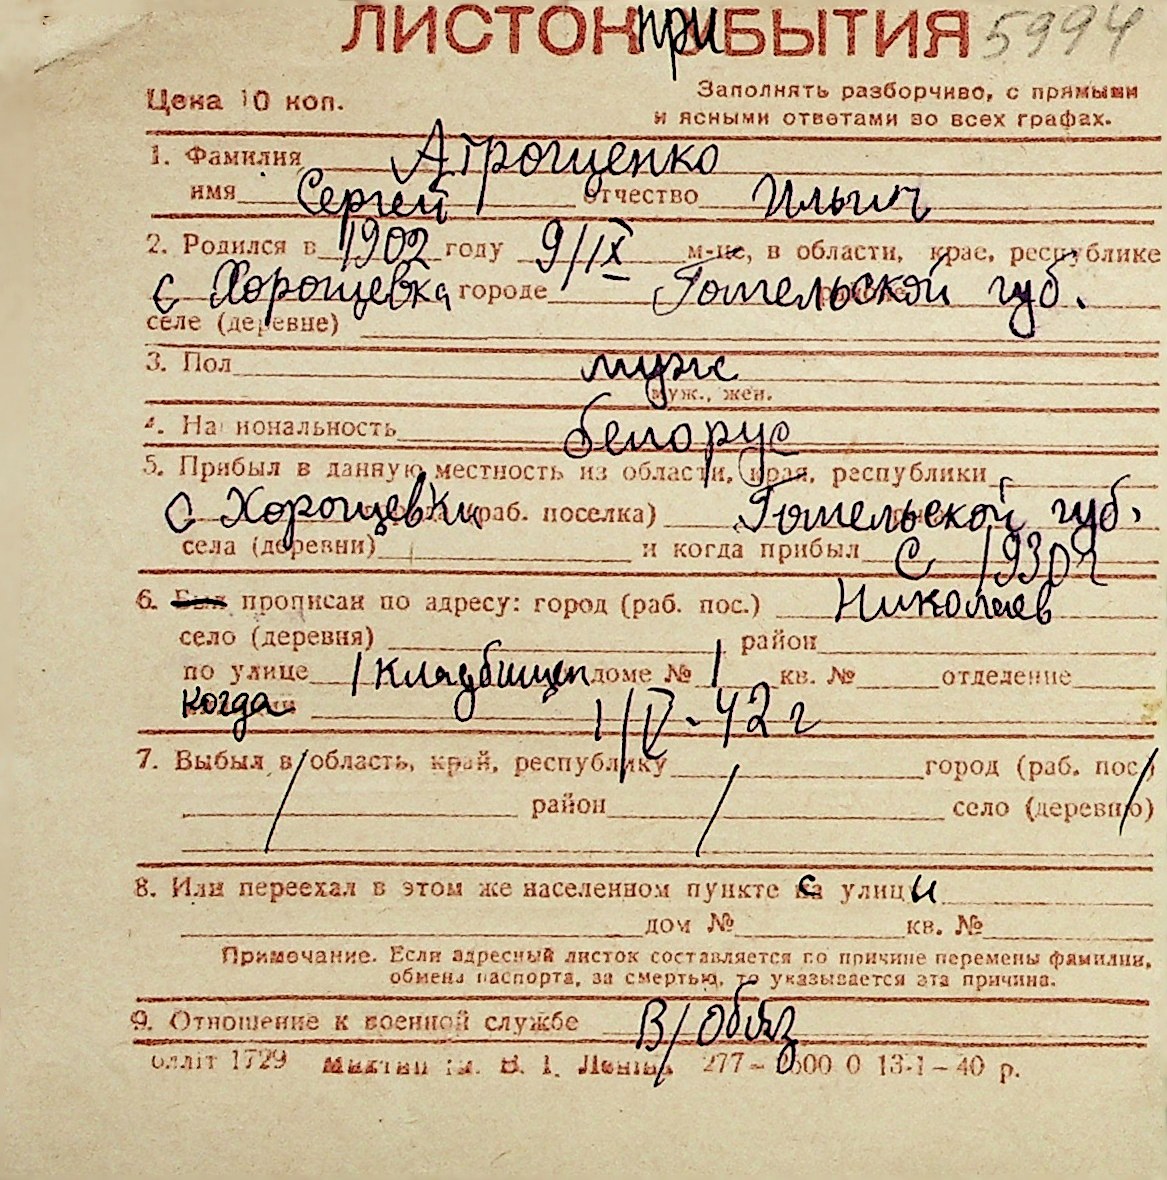 ЛИСТОК прибЫТИЯ 5994
Цена 10 коп.
Заполнять разборчиво, с прямыми
и ясными ответами во всех графах.
1. Фамилия Атрощенко
имя Сергей отчество Ильич
2. Родился в 1902 году 9/IX м-це, в области, крае, республике
с Хорощевка городе Гомельской губ.
селе (деревне)
3. Пол муж
муж., жен.
4. Национальность белорус
5. Прибыл в данную местность из области, края, республики
с Хорощевки (раб. поселка) Гомельской губ.
села (деревни) и когда прибыл с 1930 г
6. Был прописан по адресу: город (раб. пос.) Николаев
село (деревня) район
по улице 1 Кладбищен доме № 1 кв. № отделение
когда 1/IV-42 г
7. Выбыл в область, край, республику город (раб. пос.)
район село (деревню)
8. Или переехал в этом же населенном пункте с улицы
дом № кв. №
Примечание. Если адресный листок составляется по причине перемены фамилии,
обмена паспорта, за смертью, то указывается эта причина.
9. Отношение к военной службе В/Обяз
олліт 1729 ім. В. І. Леніна 277- 500 0 13-1-40 р.